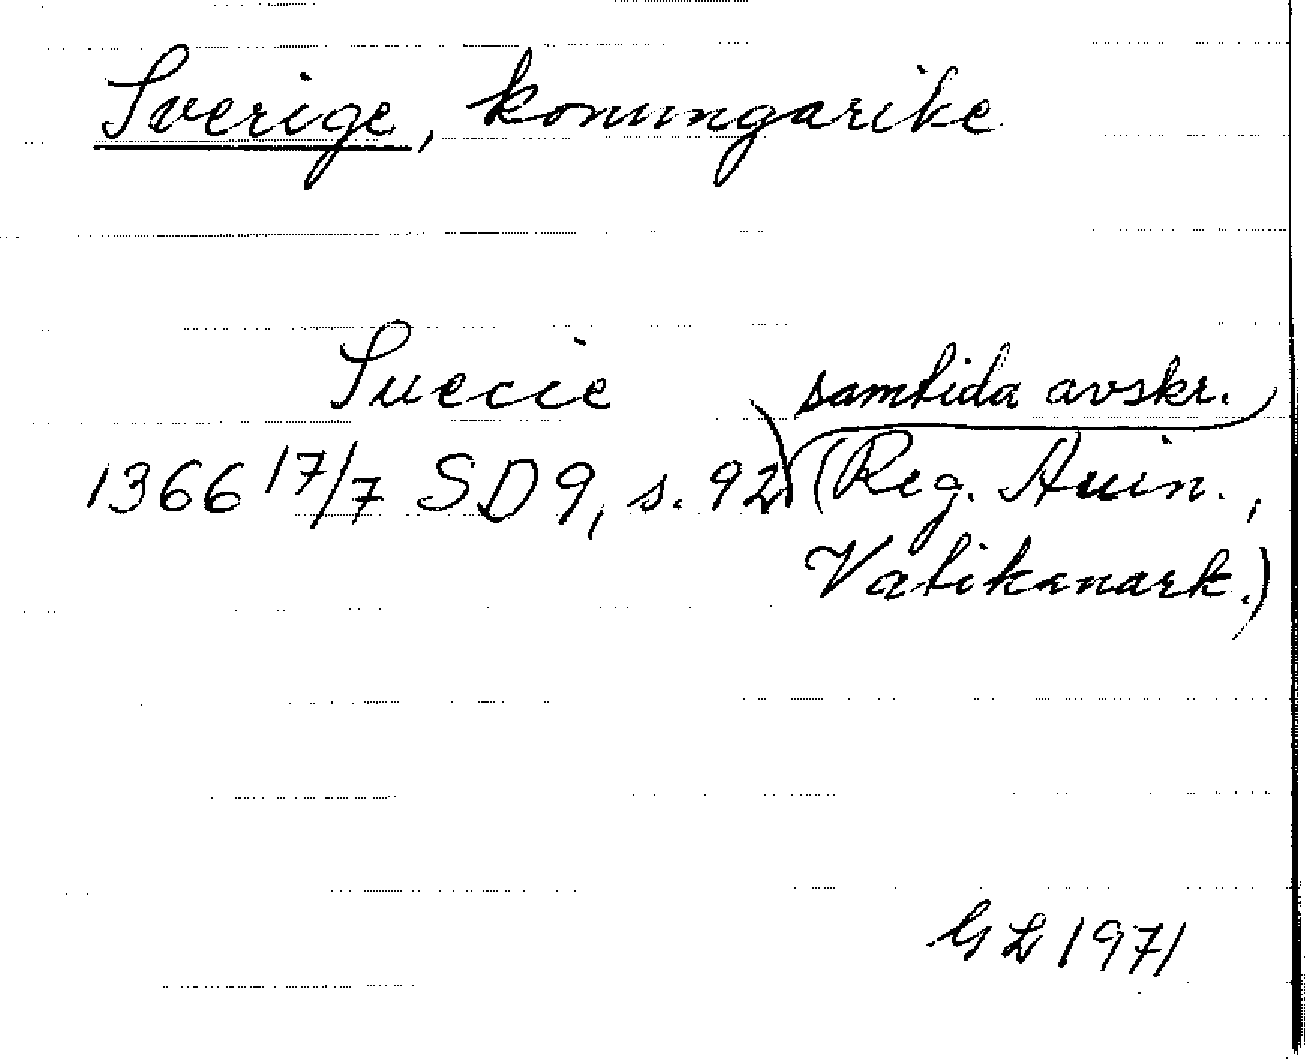 Sverige, konungarike
Suecie
samtida avskr.
1366 17/7 SD 9, s. 92 (Reg. Auin.,
Vatikanark.)
GL 1971